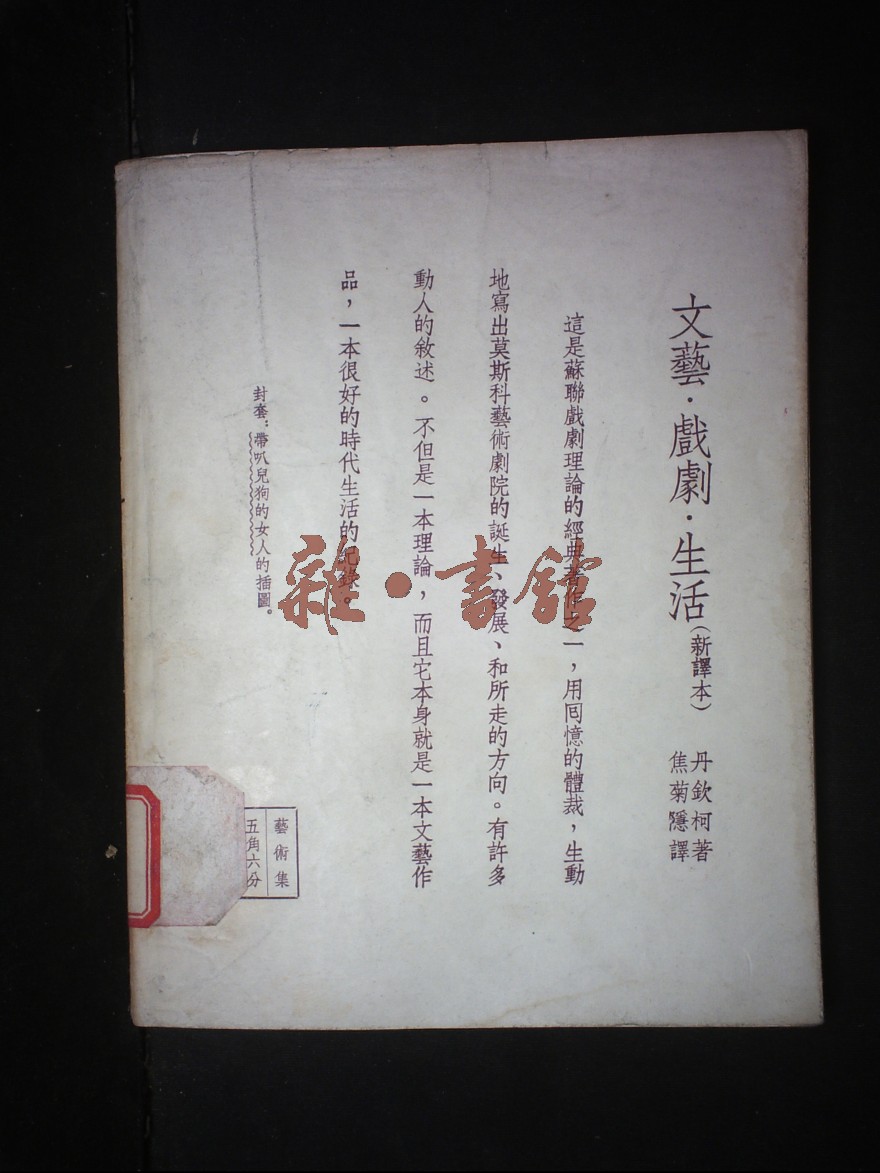 文藝·戲劇·生活(新譯本)
丹欽柯著
焦菊隱譯
這是蘇聯戲劇理論的經典著作之一,用囘憶的體裁,生動
地寫出莫斯科藝術劇院的誕生、發展、和所走的方向。有許多
動人的敘述。不但是一本理論,而且它本身就是一本文藝作
品,一本很好的時代生活的記錄。
封套:帶叭兒狗的女人的插圖。
藝術集
五角六分
雜·書館